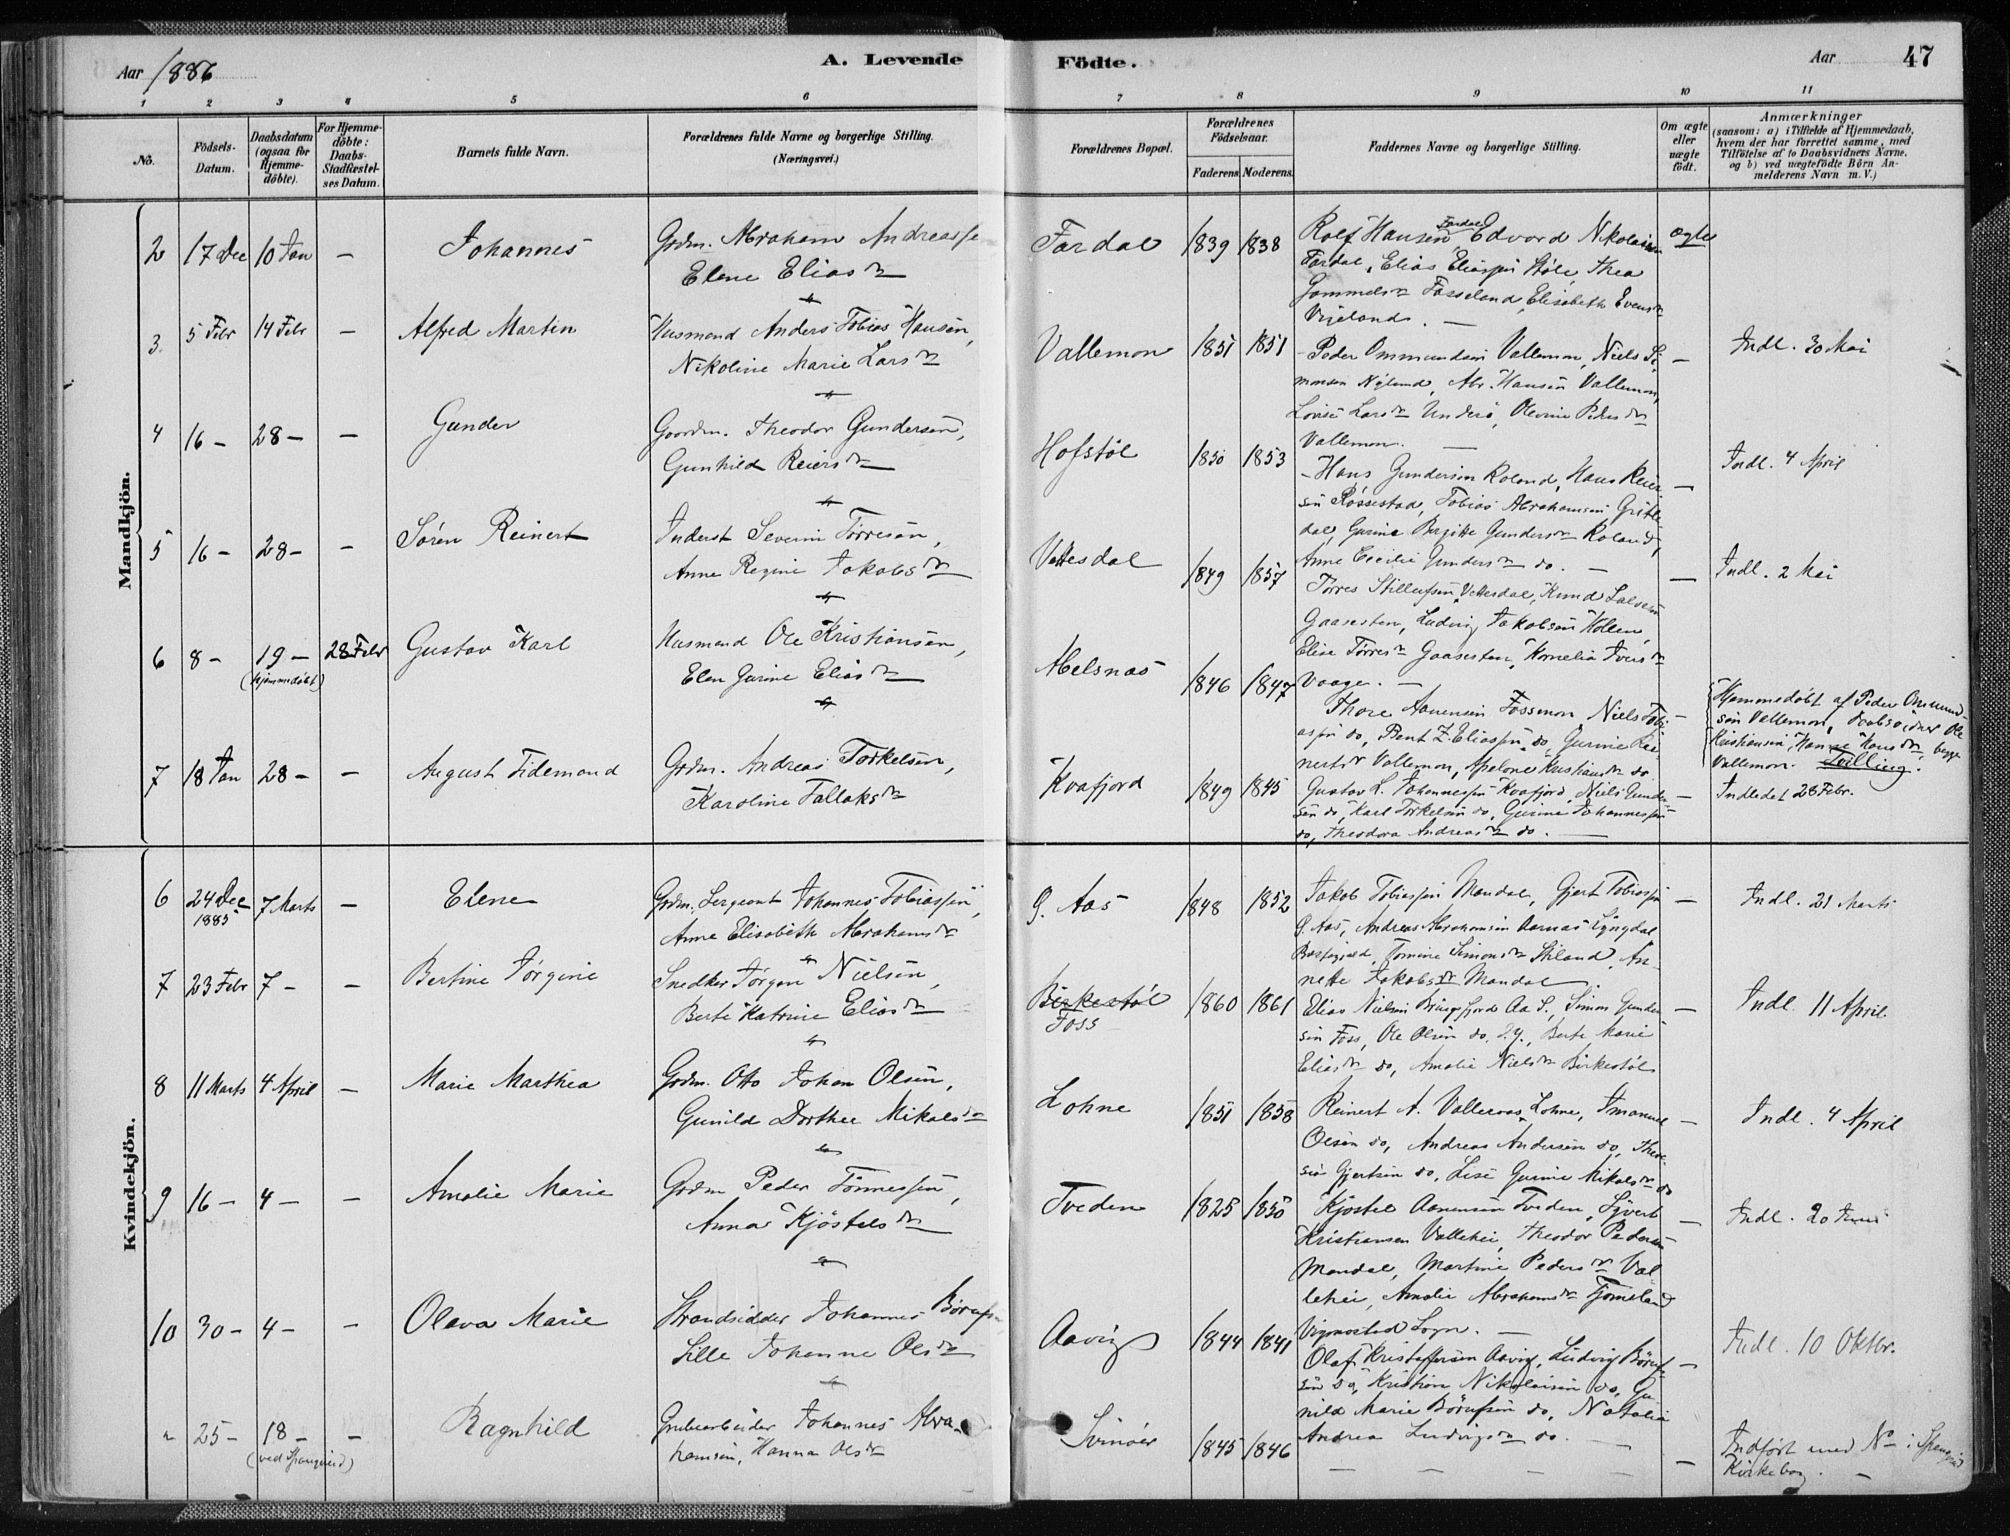 Aar 1886
A. Levende
Födte.
Aar
47
1 2 3 4 5 6 7 8 9 10 11
No.
Födsels-Datum.
Daabsdatum (ogsaa for Hjemme-döbte).
For Hjemme-döbte: Daabs-Stadfæstel-ses Datum.
Barnets fulde Navn.
Forældrenes fulde Navne og borgerlige Stilling.
(Næringsvei.)
Forældrenes Bopæl.
Forældrenes Födselsaar.
Faderens. Moderens.
Faddernes Navne og borgerlige Stilling.
Om ægte eller uægte födt.
Anmærkninger
(saasom: a) i Tilfælde af Hjemmedaab,
hvem der har forrettet samme, med
Tilföielse af to Daabsvidners Navne,
og b) ved uægtefödte Börn An-
melderens Navn m. V.)
Mandkjön.
2 17 Dec 10 Jan – Johannes
Grdm. Abraham Andreassen
Elene Eliasdr
Fardal 1839 1838
Rolf Hansen Fardal, Edvard Nikolaisen
Fardal, Elias Eliassen Støle, Thea
Gammelsdr Fasseland, Elisabeth Evensdr
Vigeland. –
ægte
3. 5 Febr 14 Febr – Alfred Martin
Husmand Anders Tobias Hansen,
Nikoline Marie Larsdr
Vallemon 1851 1851
Peder Ommundsen Vallemon, Niels Si-
monsen Nyland, Abr. Hansen Vallemon,
Lovise Larsdr Underø, Olevine Pedersdr
Vallemon. –
– Indl. 30 Mai
4 16 – 28 – – Gunder
Gaardm. Theodor Gundersen,
Gunhild Reiersdr
Hofstøl 1850 1853
Hans Gundersen Roland, Hans Reier-
sen Røssestad, Tobias Abrahamsen Gritle-
dal, Gurine Birgitte Gundersdr Roland,
Anne Cecilie Gundersdr do. –
– Indl. 4 April
5 16 – 28 – – Søren Reinert
Inderst Severin Tørresen,
Anne Regine Jakobsdr
Vettesdal 1849 1857
Tørres Stillufsen Vettesdal, Knud Salvesen
Gaasesten, Ludvig Jakobsen Hollen,
Elise Tørresdr Gaasesten, Kornelia Iversdr
Vaage. –
– Indl. 2 Mai
6 8 – 19 – (hjemmedøbt) 28 Febr Gustav Karl
Husmand Ole Kristiansen,
Elen Gurine Eliasdr
Abelsnæs 1846 1847
Thore Aanensen Fossmon, Niels Tobi-
assen do, Bent Z. Eliassen do, Gurine Rei-
nertsdr Vallemon, Apelone Kristiansdr do.
Hjemmedøbt af Peder Ommund-
sen Vallemon, Daabsvidner Ole
Kristiansen, Hansdr, begge
Vallemon. Tvilling.
7 18 Jan 28 – – August Tidemand
Grdm. Andreas Torkelsen,
Karoline Tallaksdr
Kvafjord 1849 1845
Gustav L. Johannessen Kvafjord, Niels Gunder-
sen do, Karl Torkelsen do, Gurine Johannessen
do, Theodora Andreasdr do. –
– Indledet 28 Febr.
Kvindekjön.
6 24 Dec 1885 7 Marts – Elene
Grdm. Sergeant Johannes Tobiassen,
Anne Elisabeth Abrahamsdr
G. Aas 1848 1852
Jakob Tobiassen Mandal, Gjert Tobiassen
G. Aas, Andreas Abrahamsen Aarnæs Lyngdal
Præstegjeld, Tomine Simonsdr Stiland, An-
nette Jakobsdr Mandal.
– Indl. 21 Marts
7 23 Febr 7 – – Bertine Jørgine
Snedker Jørgen Nielsen,
Berte Katrine Eliasdr
Birkestøl
Foss 1860 1861
Elias Nielsen Bringsfjord Aa S., Simon Gunder-
sen Foss, Ole Olsen do, Berte Marie
Eliasdr do, Amalie Nielsdr Birkestøl
– Indl. 11 April
8 11 Marts 4 April – Marie Marthea
Grdm. Otto Johan Olsen,
Gunild Dorthee Mikalsdr
Lohne 1851 1858
Reinert A. Vallernæs Lohne, Imanuel
Olsen do, Andreas Andersen do, There-
sia Gjertsen do, Lise Gurine Mikalsdr do
– Indl. 4 April
9 16 – 4 – – Amalie Marie
Grdm Peder Tønnessen,
Anna Kjøstelsdr
Tveden 1825 1850
Kjøstel Aanensen Tveden, Syvert
Kristiansen Vallehei, Theodor Pedersen
Mandal, Martine Pedersdr Val-
lehei, Amalie Abrahamsdr Fjomeland
Vigmostad Sogn. –
– Indl. 20 Juni
10 30 – 4 – – Olava Marie
Strandsidder Johannes Børufs-
Sille Johanne Olsdr
Aavig 1844 1841
Olaf Kristoffersen Aavig, Ludvig Børuf-
sen do, Kristian Nikolaisen do, Gu-
nild Marie Børufsen do, Natalia
Andrea Ludvigsdr do. –
– Indl. 10 Oktbr.
25 – 18 – (ved Spangereid) – Ragnhild
Grubearbeider Johannes Abra-
hamsen, Hanna Olsdr
Svinøer 1845 1846
– – – – –
– Indført med No i Spangereid
Kirkebog. –